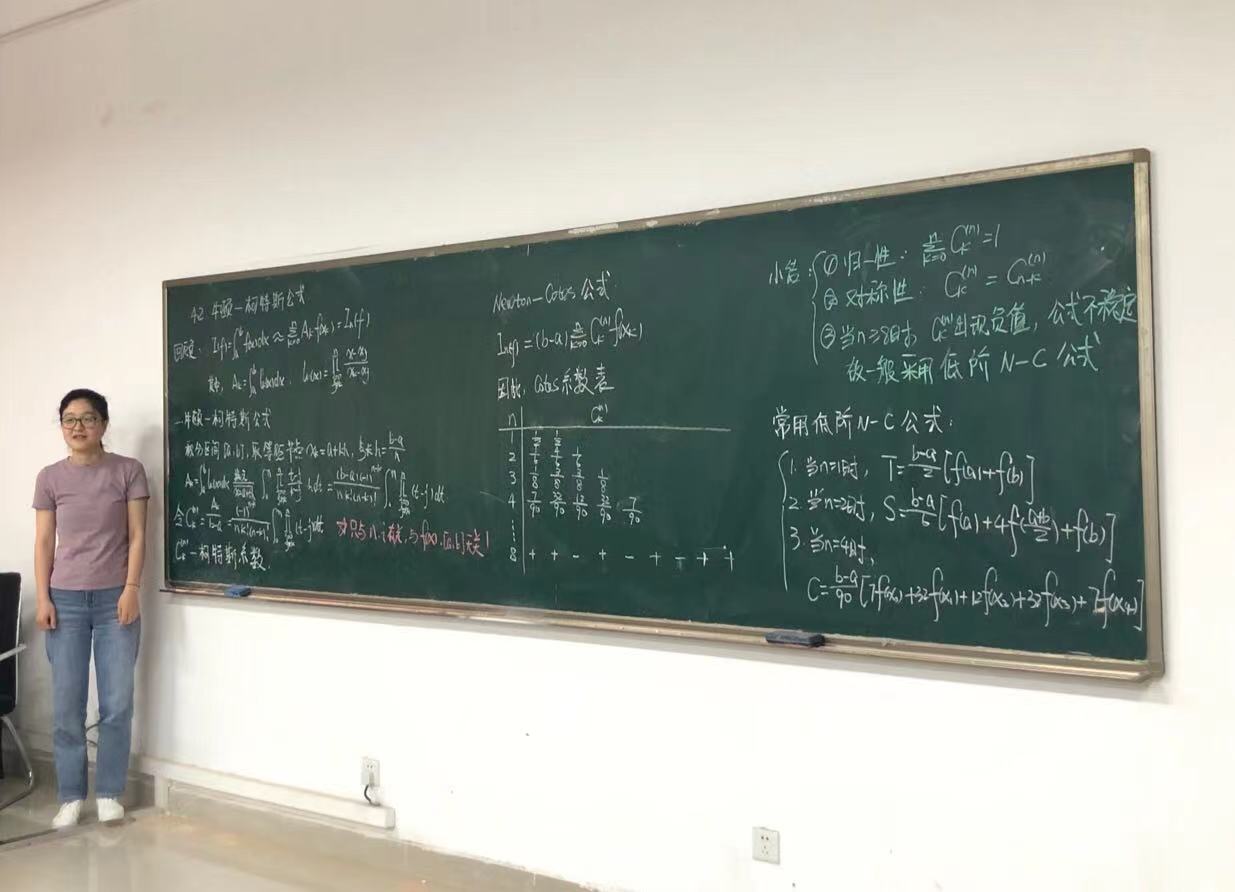 4.2 牛顿—柯特斯公式
回顾: I(f)=∫_a^b f(x)dx ≈ Σ_{k=0}^n A_k f(x_k) = I_n(f)
其中, A_k=∫_a^b l_k(x)dx, l_k(x)=∏_{j=0}^n (x-x_j)/(x_k-x_j)
一.牛顿—柯特斯公式
积分区间[a,b], 取等距节点x_k=a+kh, 步长h=(b-a)/n
A_k=∫_a^b l_k(x)dx ∫_0^n ∏ (t-j)/(k-j) h dt = (b-a)(-1)^{n-k}/(n k!(n-k)!) ∫_0^n ∏ (t-j)dt
令C_k^{(n)}=A_k/(b-a)=(-1)^{n-k}/(n k!(n-k)!) ∫_0^n ∏ (t-j)dt
只与n, 有关, 与f(x), [a,b]无关!
C_k^{(n)}—柯特斯系数.
Newton—Cotes公式:
I_n(f)=(b-a) Σ_{k=0}^n C_k^{(n)} f(x_k)
因此, Cotes系数表
n C_k^{(n)}
1 1/2 1/2
2 1/6 4/6 1/6
3 1/8 3/8 3/8 1/8
4 7/90 32/90 12/90 32/90 7/90
⋮
8 + + - + - + - + +
小结: ①归一性: Σ_{k=0}^n C_k^{(n)}=1
②对称性: C_k^{(n)} = C_{n-k}^{(n)}
③当n≥8时, C_k^{(n)}出现负值, 公式不稳定
故一般采用低阶N-C公式
常用低阶N-C公式:
1. 当n=1时, T=(b-a)/2 [f(a)+f(b)]
2. 当n=2时, S=(b-a)/6 [f(a)+4f((a+b)/2)+f(b)]
3. 当n=4时,
C=(b-a)/90 [7f(x_0)+32f(x_1)+12f(x_2)+32f(x_3)+7f(x_4)]